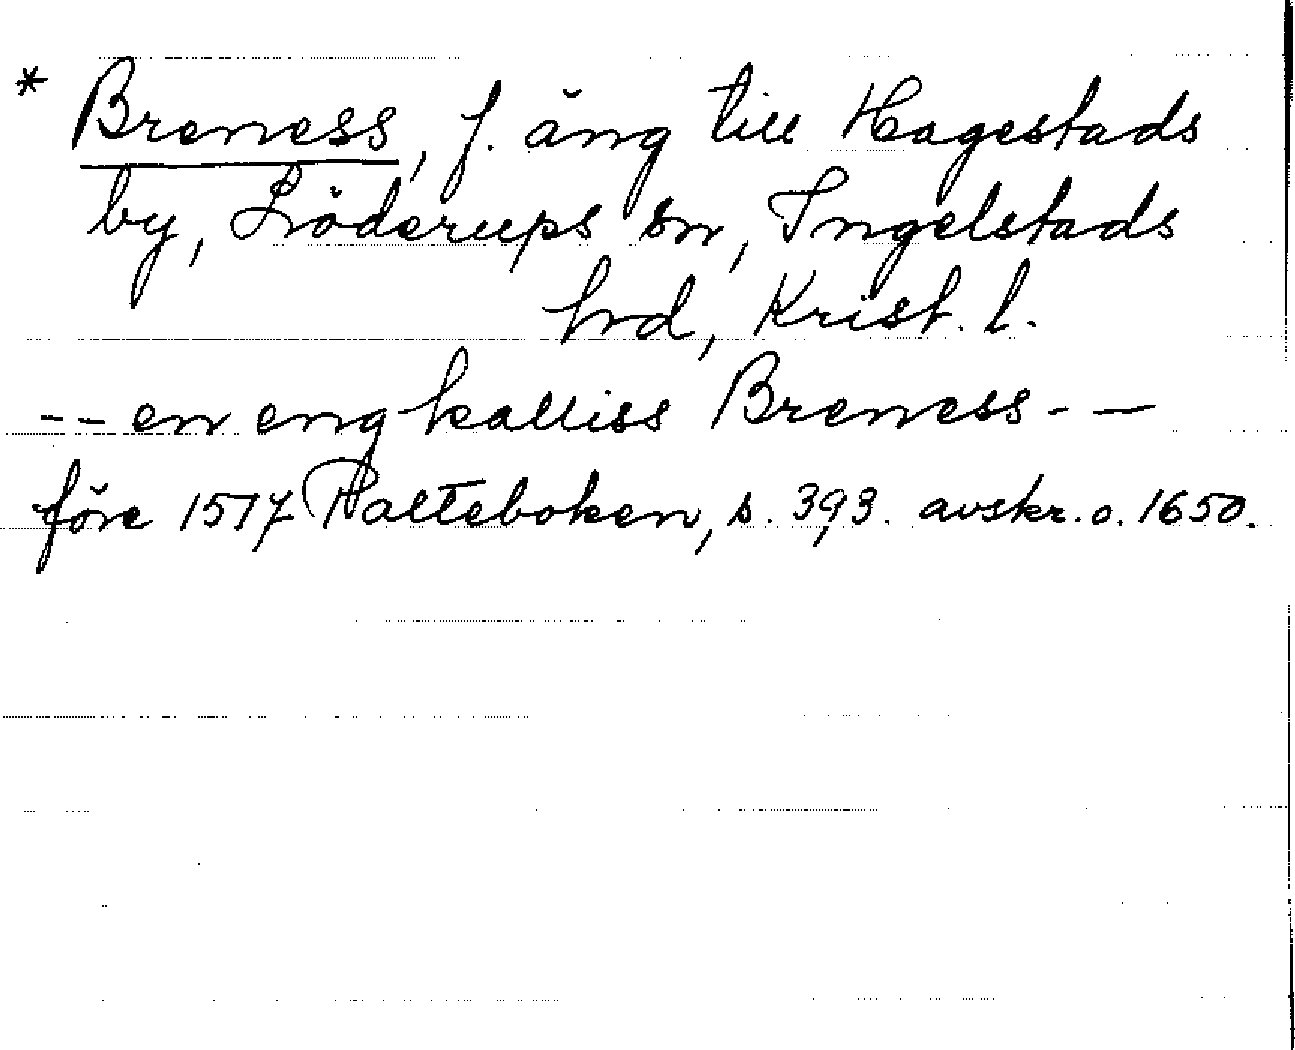 * Breness, f. äng till Hagestads
by, Löderups sn, Ingelstads
hrd, Krist. l.
-- en eng kalliss Breness - —
före 1517 Palteboken, s. 393. avskr. o. 1650.